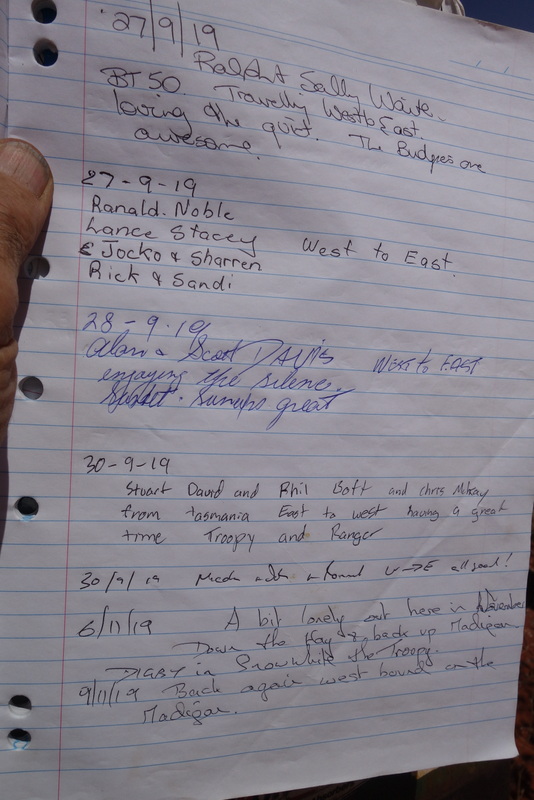 27/9/19
Ralph & Sally Waite.
BT50. Travelling West to East.
loving the quiet. The Budgies are
awesome.
27-9-19
Ranald. Noble
Lance Stacey
& Jocko & Sharren West to East.
Rick & Sandi
28-9-19
Alan & Scott DAVIS WEST to EAST
enjoying the silence.
Sunset. Sunups great
30-9-19
Stuart David and Phil Bott and Chris McKay
from tasmania East to west having a great
time Troopy and Ranger
30/9/19 W→E all good!
6/11/19 A bit lonely out here in November
Down the Hay & back up Madigan
DIGBY in Snowwhite the Troopy.
9/11/19 Back again west bound on the
Madigan.